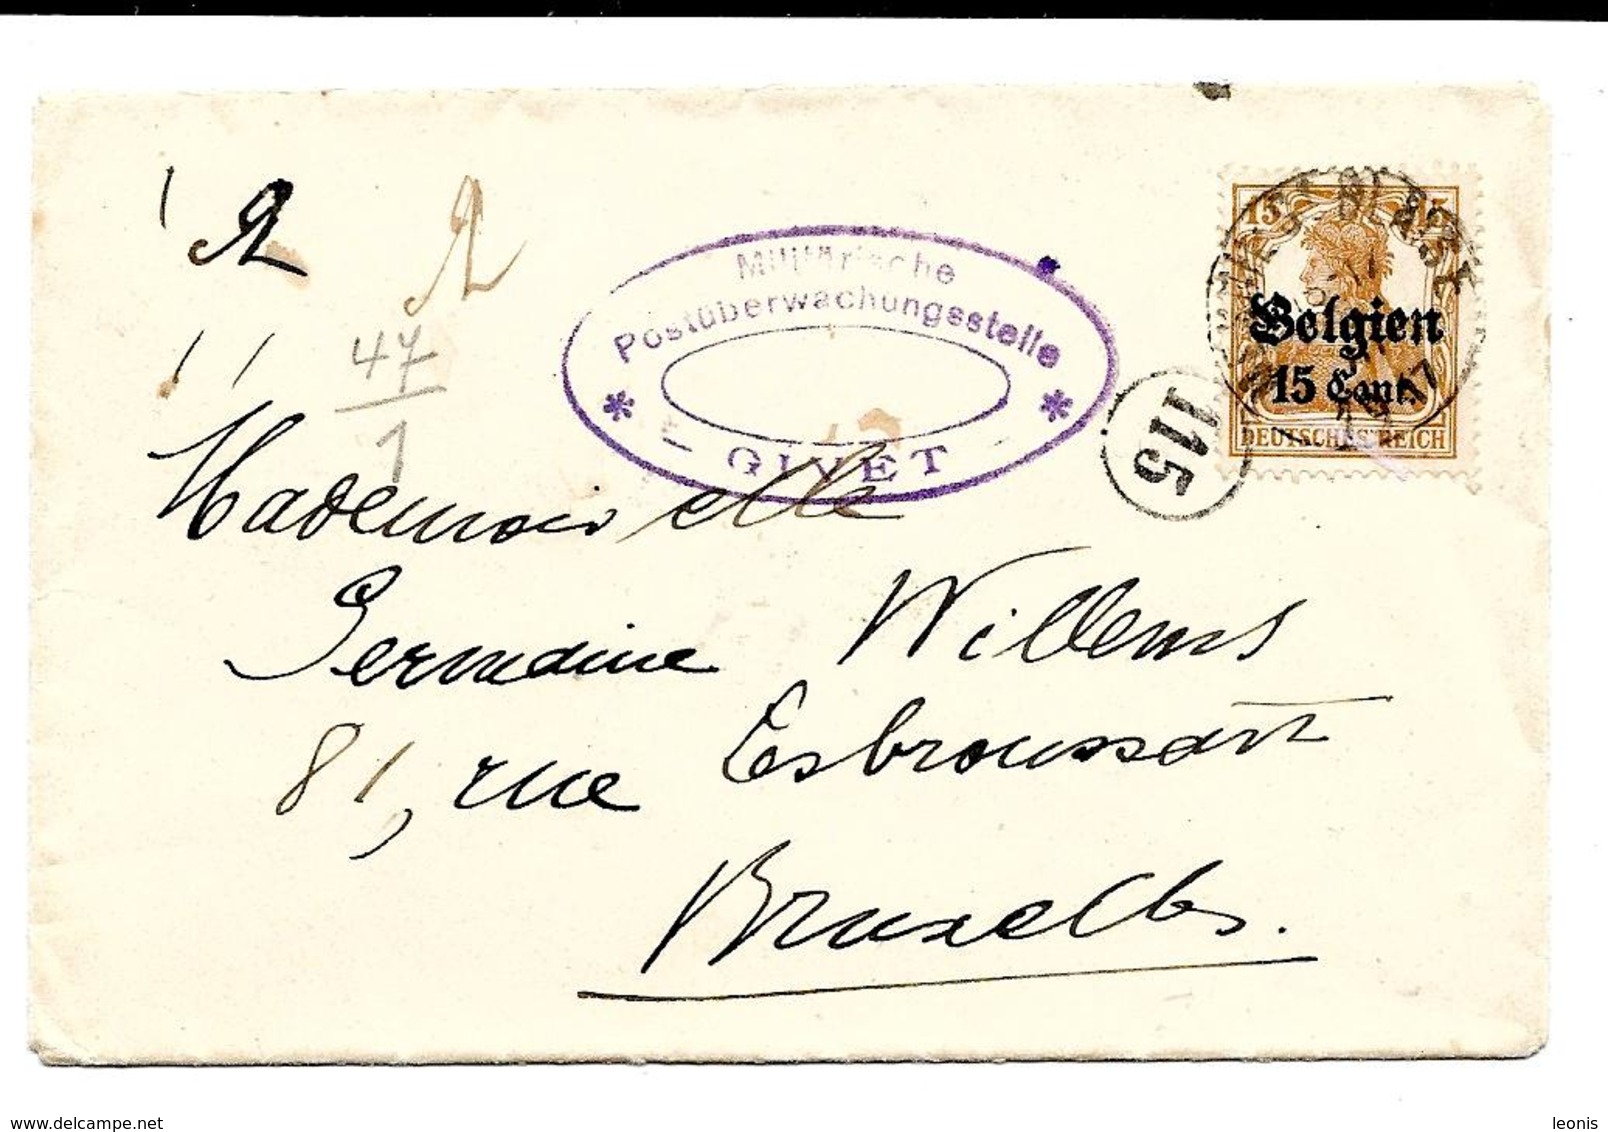 15 15
Belgien
15 Cent.
DEUTSCHES REICH
Militärische
Postüberwachungsstelle
* GIVET *
115
47
1
Mademoiselle
Germaine Willems
81, rue Esbroussart
Bruxelles.
delcampe.net
leonis